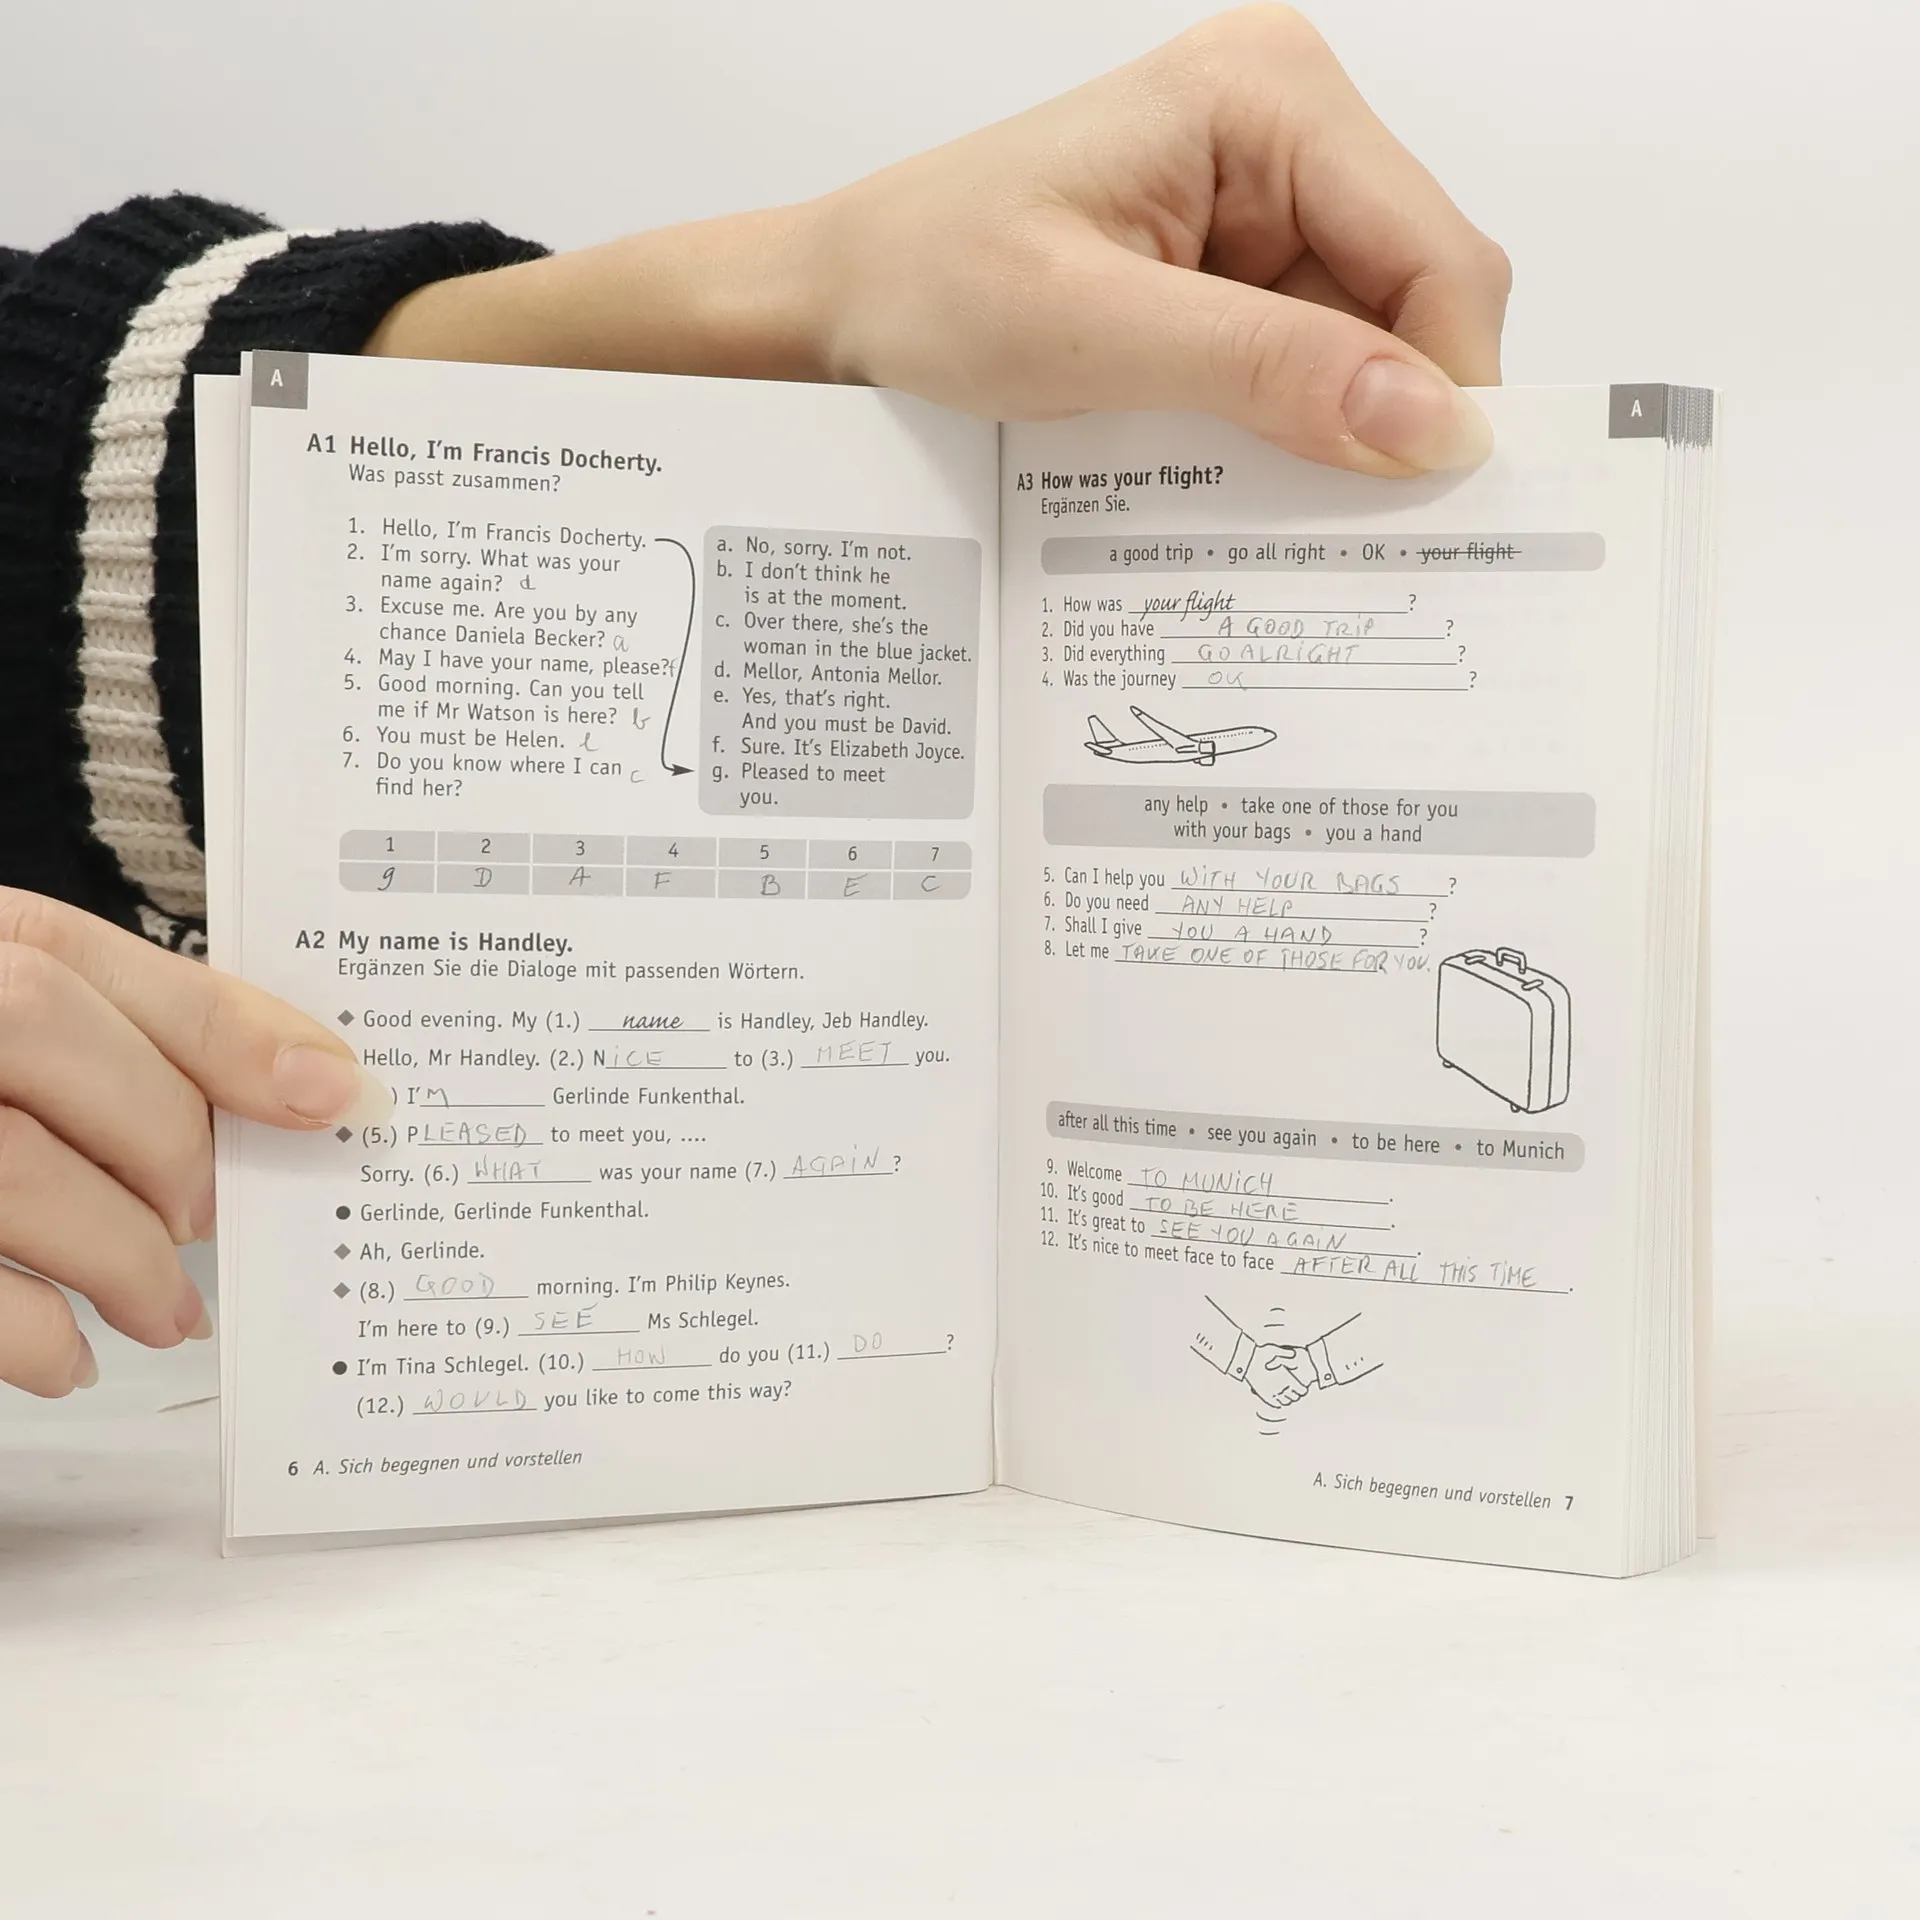 A
A1 Hello, I'm Francis Docherty.
Was passt zusammen?
1. Hello, I'm Francis Docherty.
2. I'm sorry. What was your
name again? d
3. Excuse me. Are you by any
chance Daniela Becker? a
4. May I have your name, please? f
5. Good morning. Can you tell
me if Mr Watson is here? b
6. You must be Helen. e
7. Do you know where I can c
find her?
a. No, sorry. I'm not.
b. I don't think he
is at the moment.
c. Over there, she's the
woman in the blue jacket.
d. Mellor, Antonia Mellor.
e. Yes, that's right.
And you must be David.
f. Sure. It's Elizabeth Joyce.
g. Pleased to meet
you.
1 2 3 4 5 6 7
g D A F B E C
A2 My name is Handley.
Ergänzen Sie die Dialoge mit passenden Wörtern.
◆ Good evening. My (1.) name is Handley, Jeb Handley.
Hello, Mr Handley. (2.) NiCE to (3.) MEET you.
) I'M Gerlinde Funkenthal.
◆ (5.) PLEASED to meet you, ....
Sorry. (6.) WHAT was your name (7.) AGAiN ?
● Gerlinde, Gerlinde Funkenthal.
◆ Ah, Gerlinde.
◆ (8.) GOOD morning. I'm Philip Keynes.
I'm here to (9.) SEE Ms Schlegel.
● I'm Tina Schlegel. (10.) HOW do you (11.) DO ?
(12.) WOULD you like to come this way?
6 A. Sich begegnen und vorstellen
A
A3 How was your flight?
Ergänzen Sie.
a good trip • go all right • OK • your flight
1. How was your flight ?
2. Did you have A GOOD TRiP ?
3. Did everything GO ALRiGHT ?
4. Was the journey OK ?
any help • take one of those for you
with your bags • you a hand
5. Can I help you WiTH YOUR BAGS ?
6. Do you need ANY HELP ?
7. Shall I give YOU A HAND ?
8. Let me TAKE ONE OF THOSE FOR YOU.
after all this time • see you again • to be here • to Munich
9. Welcome TO MUNiCH .
10. It's good TO BE HERE .
11. It's great to SEE YOU AGAiN .
12. It's nice to meet face to face AFTER ALL THiS TiME .
A. Sich begegnen und vorstellen 7